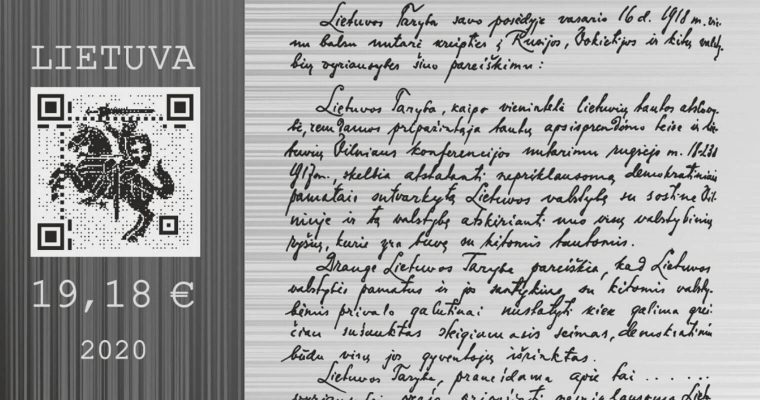 LIETUVA
19,18 €
2020
Lietuvos Taryba savo posėdyje vasario 16 d. 1918 m. vie-
nu balsu nutarė kreipties į Rusijos, Vokietijos ir kitų valsty-
bių vyriausybes šiuo pareiškimu:
Lietuvos Taryba, kaipo vienintelė lietuvių tautos atstovy-
bė, remdamos pripažintąja tautų apsisprendimo teise ir lie-
tuvių Vilniaus konferencijos nutarimu rugsėjo m. 18-23 d.
1917 m., skelbia atstatanti nepriklausomą, demokratiniais
pamatais sutvarkytą Lietuvos valstybę su sostine Vil-
niuje ir tą valstybę atskirianti nuo visų valstybinių
ryšių, kurie yra buvę su kitomis tautomis.
Drauge Lietuvos Taryba pareiškia, kad Lietuvos
valstybės pamatus ir jos santykius su kitomis valsty-
bėmis privalo galutinai nustatyti kiek galima grei-
čiau sušauktas steigiamasis seimas, demokratiniu
būdu visų jos gyventojų išrinktas.
Lietuvos Taryba, pranešdama apie tai . . . . . .